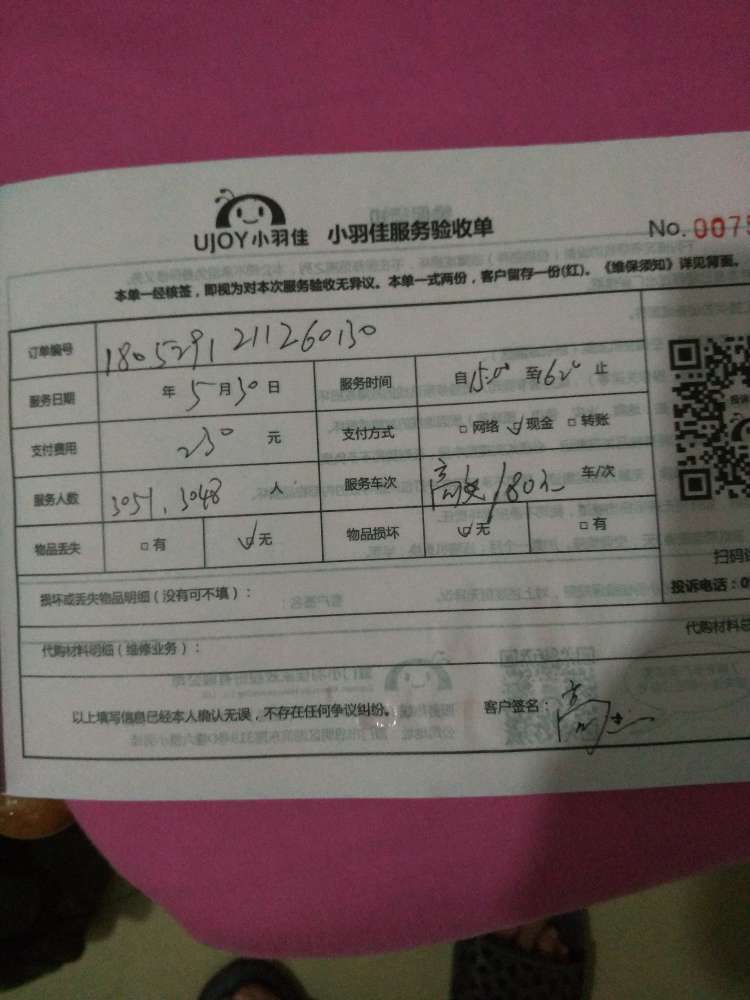 UJOY小羽佳 小羽佳服务验收单 No. 0075
本单一经核签，即视为对本次服务验收无异议。本单一式两份，客户留存一份(红)。《维保须知》详见背面。
订单编号 1805291211260130
服务日期 年 5 月 30 日 服务时间 自 15:00 至 1620 止
支付费用 230 元 支付方式 □ 网络 ☑ 现金 □ 转账
服务人数 3051、3048 人 服务车次 车/次
物品丢失 □ 有 ☑ 无 物品损坏 ☑ 无 □ 有
扫码
损坏或丢失物品明细（没有可不填）：
投诉电话：0
代购材料明细（维修业务）： 代购材料总
以上填写信息已经本人确认无误，不存在任何争议纠纷。 客户签名：